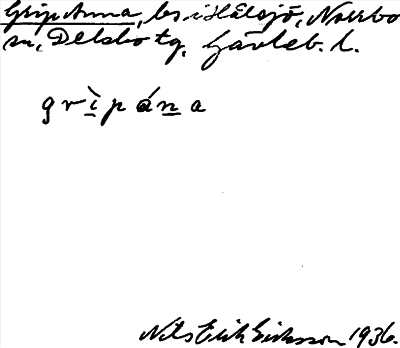 Grip Anna, bs i Hålsjö, Norrbo
sn, Delsbo tg, Gävleb. l.
grìpána
Nils Erik Eriksson 1936.